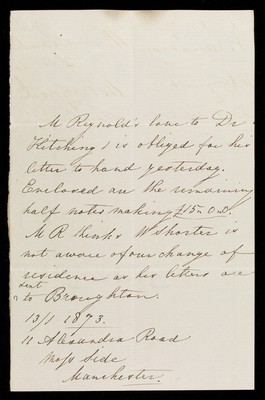 M Reynold's love to Dr
Hitching & is obliged for his
letter to hand yesterday.
Enclosed are the remaining
half notes making £15 " 0 "
M R thinks W Shorter is
not aware of our change of
residence as his letters are
sent
to Broughton.
13/1 1873.
11 Alexandra Road
Moss Side
Manchester.